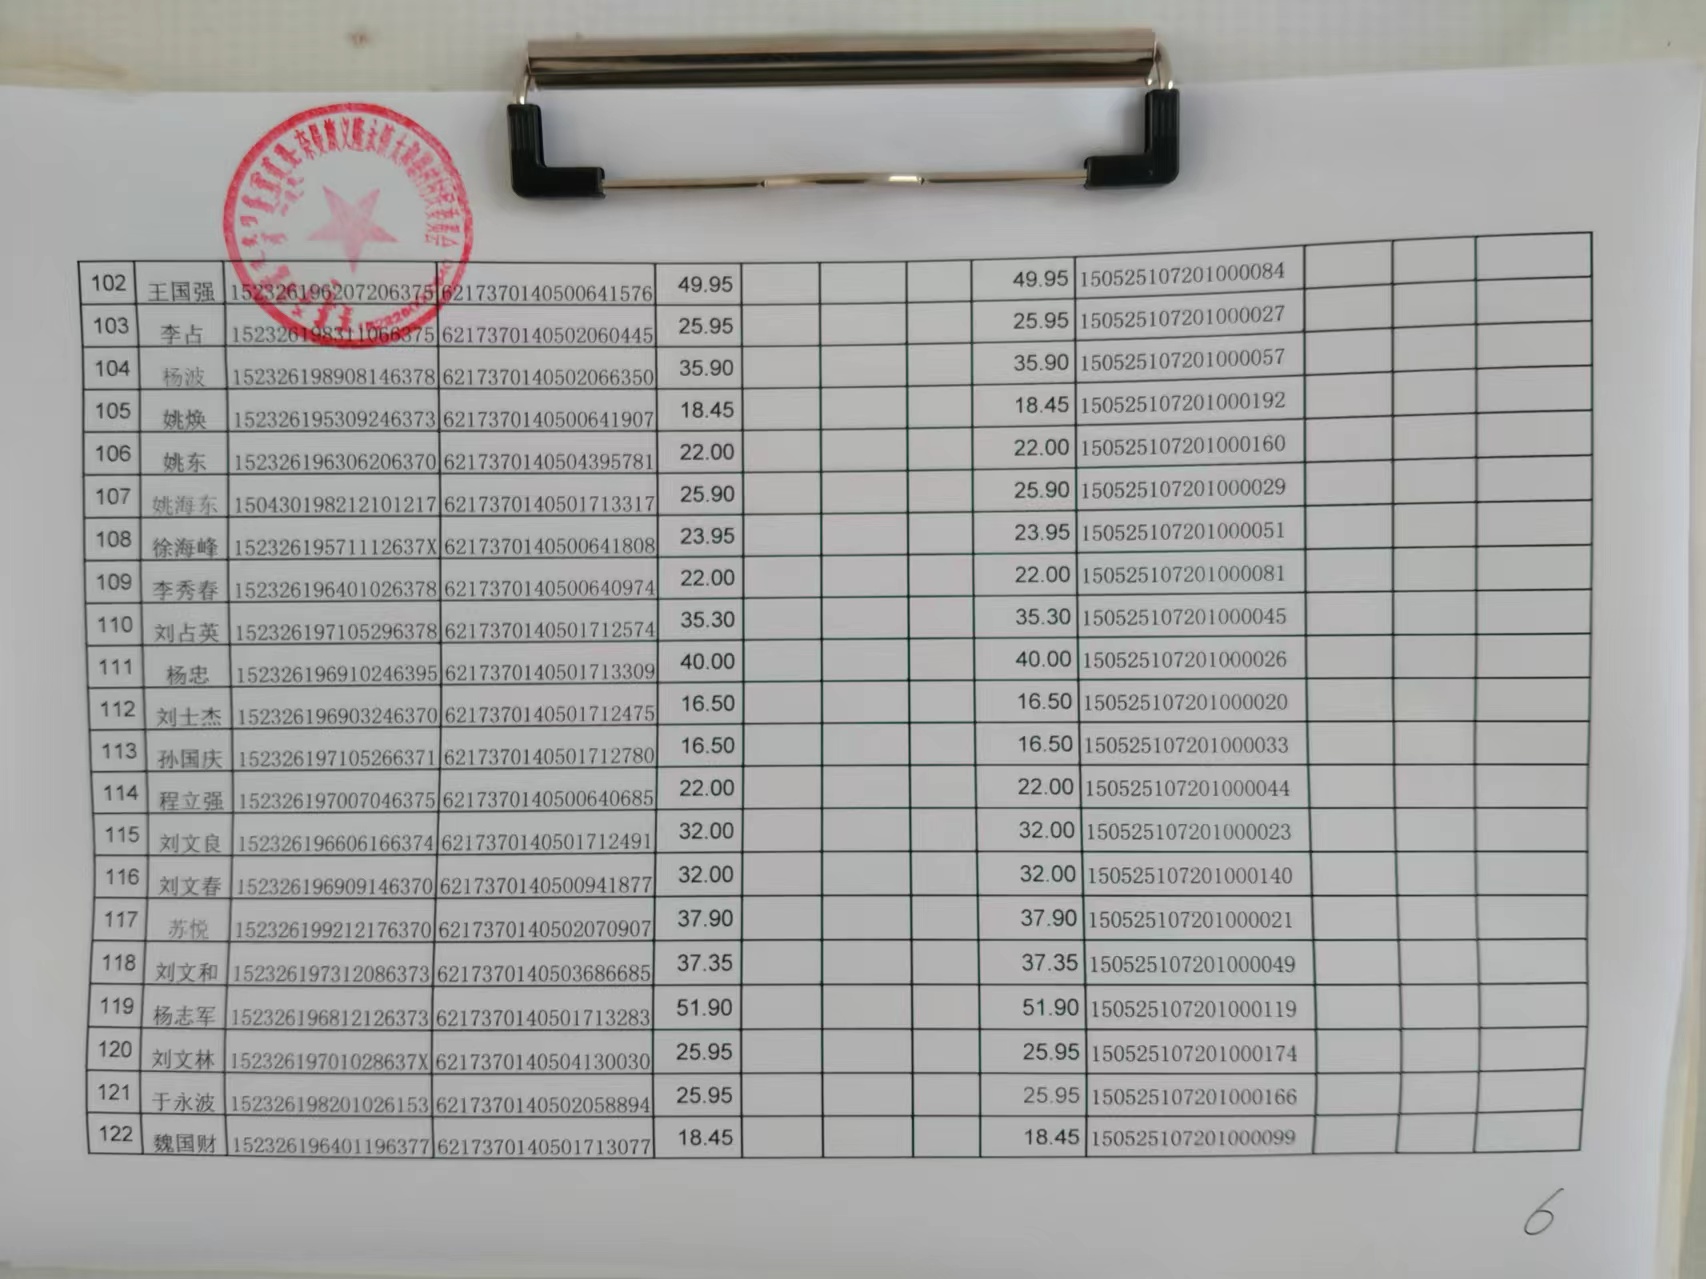 102 王国强 152326196207206375 6217370140500641576 49.95 49.95 150525107201000084
103 李占 152326198311066375 6217370140502060445 25.95 25.95 150525107201000027
104 杨波 152326198908146378 6217370140502066350 35.90 35.90 150525107201000057
105 姚焕 152326195309246373 6217370140500641907 18.45 18.45 150525107201000192
106 姚东 152326196306206370 6217370140504395781 22.00 22.00 150525107201000160
107 姚海东 150430198212101217 6217370140501713317 25.90 25.90 150525107201000029
108 徐海峰 15232619571112637X 6217370140500641808 23.95 23.95 150525107201000051
109 李秀春 152326196401026378 6217370140500640974 22.00 22.00 150525107201000081
110 刘占英 152326197105296378 6217370140501712574 35.30 35.30 150525107201000045
111 杨忠 152326196910246395 6217370140501713309 40.00 40.00 150525107201000026
112 刘士杰 152326196903246370 6217370140501712475 16.50 16.50 150525107201000020
113 孙国庆 152326197105266371 6217370140501712780 16.50 16.50 150525107201000033
114 程立强 152326197007046375 6217370140500640685 22.00 22.00 150525107201000044
115 刘文良 152326196606166374 6217370140501712491 32.00 32.00 150525107201000023
116 刘文春 152326196909146370 6217370140500941877 32.00 32.00 150525107201000140
117 苏悦 152326199212176370 6217370140502070907 37.90 37.90 150525107201000021
118 刘文和 152326197312086373 6217370140503686685 37.35 37.35 150525107201000049
119 杨志军 152326196812126373 6217370140501713283 51.90 51.90 150525107201000119
120 刘文林 15232619701028637X 6217370140504130030 25.95 25.95 150525107201000174
121 于永波 152326198201026153 6217370140502058894 25.95 25.95 150525107201000166
122 魏国财 152326196401196377 6217370140501713077 18.45 18.45 150525107201000099
6